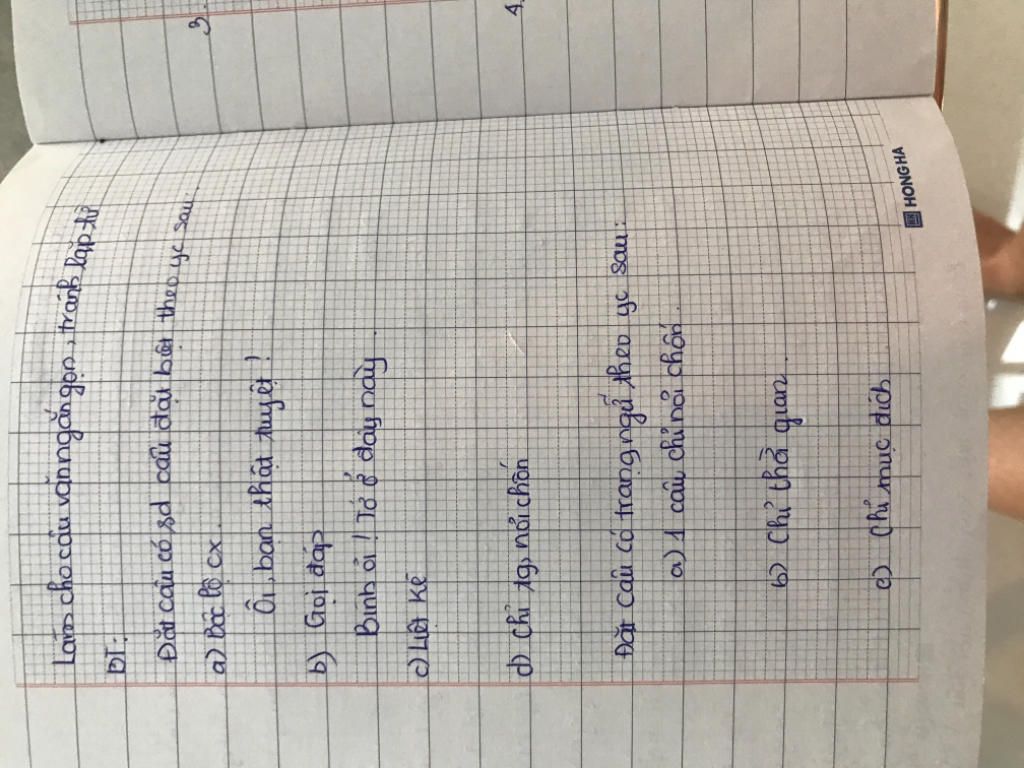 Làm cho câu văn ngắn gọn, tránh lặp từ
BT:
Đặt câu có sd câu đặt biệt theo yc sau:
a) Bộc lộ cx.
Ôi, bạn thật tuyệt!
b) Gọi đáp
Bình ơi! Tớ ở đây này.
c) Liệt kê
d) Chỉ tg, nơi chốn
Đặt câu có trạng ngữ theo yc sau:
a) 1 câu chỉ nơi chốn.
b) Chỉ thời gian.
c) Chỉ mục đích
HONG HA
3.
4.